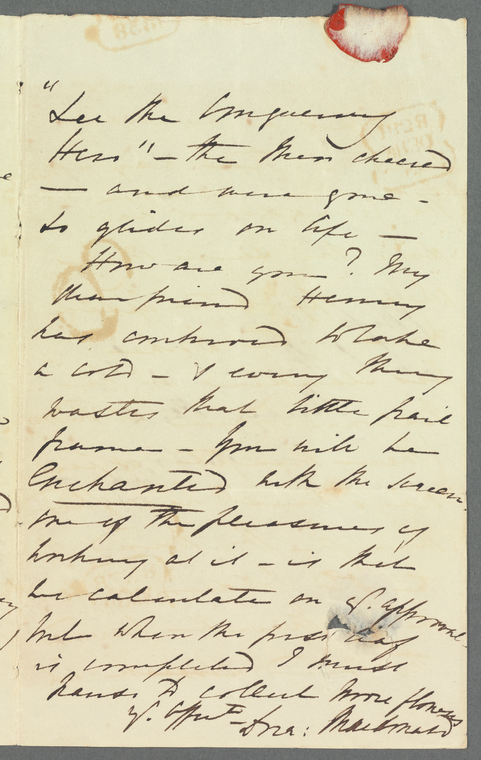 "See the Conquering
Hero" - the Men cheered
— and were gone -
So glides on life —
How are you? My
dear friend Henry
has contrived to take
a cold - & every thing
wastes that little frail
frame - You will be
Enchanted with the screen
one of the pleasures of
working at it - is that
we calculate on yr. approval
but when the first leaf
is completed I must
pause to collect more flowers
yr. Affte -